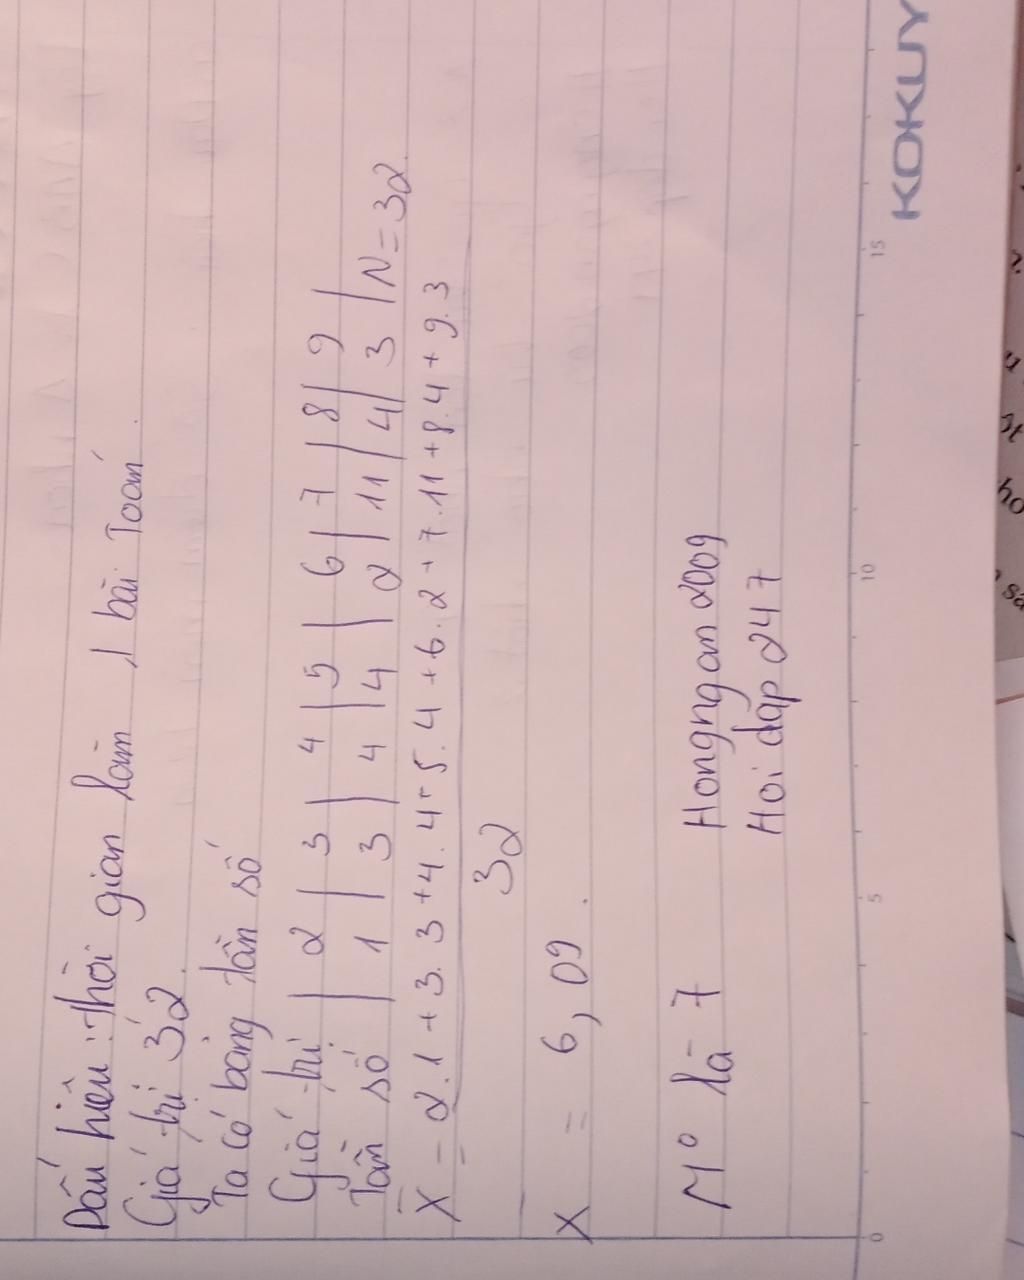 Dấu hiệu : Thời gian làm 1 bài Toán
Giá trị 32.
Ta có bảng tần số
Giá trị | 2 | 3 | 4 | 5 | 6 | 7 | 8 | 9 |
Tần số | 1 | 3 | 4 | 4 | 2 | 11 | 4 | 3 | N = 32
X = 2.1 + 3.3 + 4.4 + 5.4 + 6.2 + 7.11 + 8.4 + 9.3
32
X = 6,09.
M⁰ là 7
Hongngan2009
Hoi dap 247
0 5 10 15
KOKUY